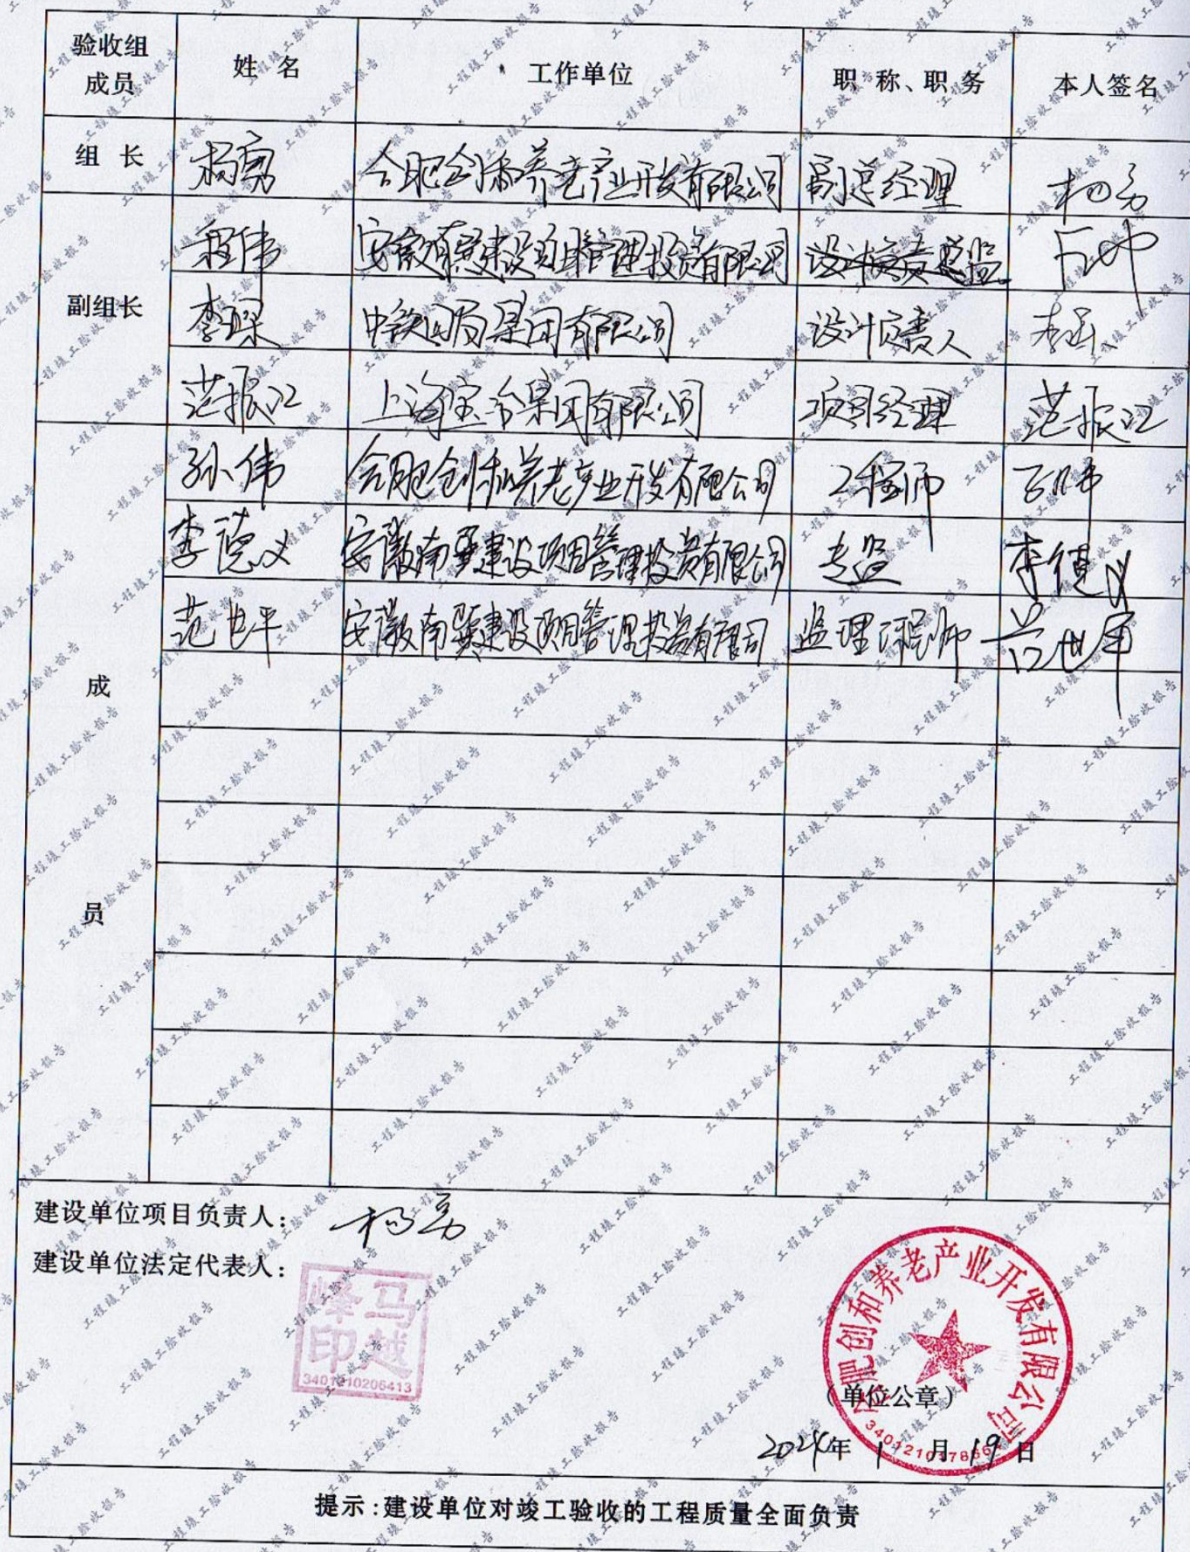 验收组成员 姓 名 工作单位 职 称、职 务 本人签名
组 长 杨勇 合肥创和养老产业开发有限公司 副总经理 杨勇
副组长
程伟 安徽南巽建设项目管理投资有限公司 总监
李 中铁四局集团有限公司 设计负责人 李
范振江 上海宝冶集团有限公司 项目经理 范振江
成员
孙伟 合肥创和养老产业开发有限公司 工程师 孙伟
李德义 安徽南巽建设项目管理投资有限公司 专监 李德义
范世平 安徽南巽建设项目管理投资有限公司 监理工程师 范世平
建设单位项目负责人: 杨勇
建设单位法定代表人:
马越峰印
3401210206413
合肥创和养老产业开发有限公司
(单位公章)
2024年 1 月 19 日
提示:建设单位对竣工验收的工程质量全面负责
工程竣工验收报告